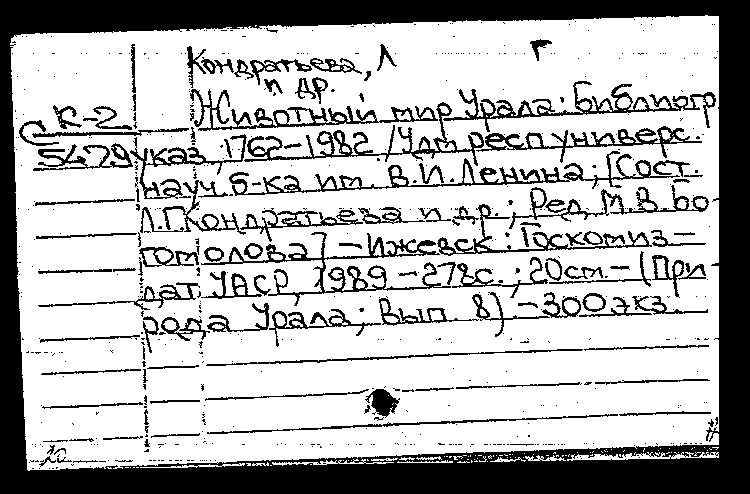 Кондратьева, Л
и др. Г
К-2 Животный мир Урала: Библиогр
5479 указ, 1762-1982. / Удм респ универс.
науч. б-ка им. В.И. Ленина; [Сост.
Л.Г. Кондратьева и др.; Ред. М.В. Бо-
гомолова] - Ижевск: Госкомиз-
дат УАСР, 1989 - 278с.; 20см - (При-
рода Урала; Вып. 8) - 300 экз.